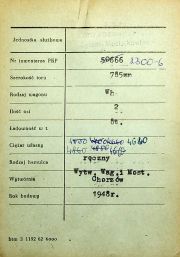 Jednostka służbowa
Nr inwentarza PKP 50666 2300-6
Szerokość toru 785mm
Rodzaj wagonu Wh
Ilość osi 2
Ładowność w t 8t.
Ciężar własny 4800 4640
4860
Rodzaj hamulca ręczny
Wytwórnia Wytw. Wag. i Most. Chorzów
Rok budowy 1948r.
bzm 3 1192 62 6000